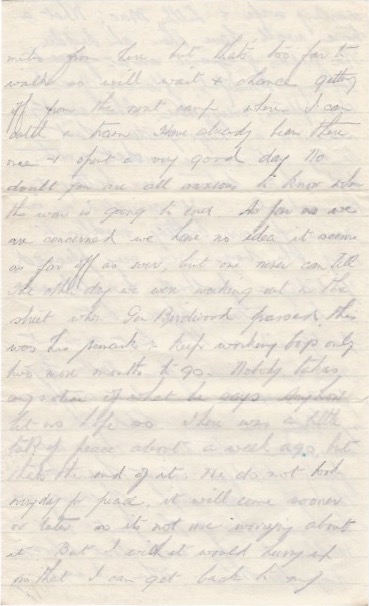 miles from here but thats too far to
walk so will wait & chance getting
off from the next camp where I can
catch a train Have already been there
once & spent a very good day No
doubt you are all anxious to know when
the war is going to end As far as we
are concerned we have no idea it seems
as far off as ever, but one never can tell
The other day we were working out in the
street when Gen Birdwood passed, this
was his remark - Keep working boys only
two more months to go. Nobody takes
any notice of what he says anyhow
let us hope so There was a little
talk of peace about a week ago but
thats the end of it. We do not look
every day for peace, it will come sooner
or later so its not me worrying about
it. But I wish it would hurry up
so that I can get back to my